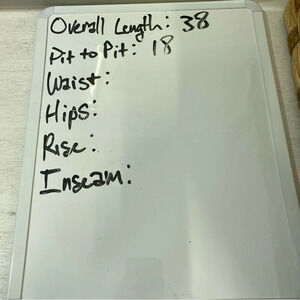 Overall Length: 38
Pit to Pit: 18
Waist:
Hips:
Rise:
Inseam: